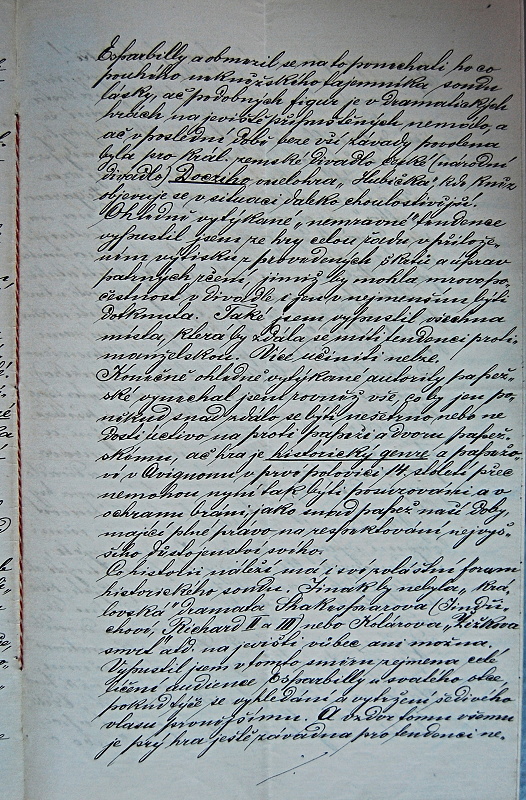 Esparbilly a obmezil se na to ponechati ho co
pouhého nekněžského tajemníka, soudu
lásky, ač podobných figur je v dramatických
hrách na jevišti připuštěných nemálo, a
ač v poslední době beze vší závady povolena
byla pro král. zemské divadlo české (národní
divadlo) Docziho veselohra „Hubička", kde kněz
objevuje se v situaci daleko choulostivější.
Ohledně vytýkané „nemravné" tendence
vypustil jsem ze hry celou řadu v přilože-
ném výtisku provedených škrtů a úprav
patrných rčení, jimiž by mohla mravopo-
čestnost v divadle i jen v nejmenším býti
dotknuta. Také jsem vypustil všechna
místa, která by zdála se míti tendenci proti-
manželskou. Více učiniti nelze.
Konečně ohledně vytýkané autority papež-
ské vynechal jsem rovněž vše, co by jen po-
někud snad zdálo se býti nešetrno nebo ne
dosti uctivo na proti papeži a dvoru papež-
skému, ač hra je historický genre a papežo-
vé v Avignonu v prvé polovici 14. století přec
nemohou nyní tak býti posuzováni a v
ochranu bráni, jako snad papež naší doby
mající plné právo na respektování nejvyš-
šího důstojenství svého.
Co historii náleží, má i své zvláštní forum
historického soudu. Jinak by nebyla „krá-
lovská" dramata Shakespearova (Jindři-
chové, Richard II a III) nebo Kolárova „Žižkova
smrt" atd. na jevišti vůbec ani možna.
Vypustil jsem v tomto smíru zejmena celé
líčení audience Esparbilly u svatého otce
pokud týče se vyhledání a vytržení šedivého
vlasu prvnějšímu. A vzdor tomu všemu
je prý hra ještě závadna pro tendenci ne-